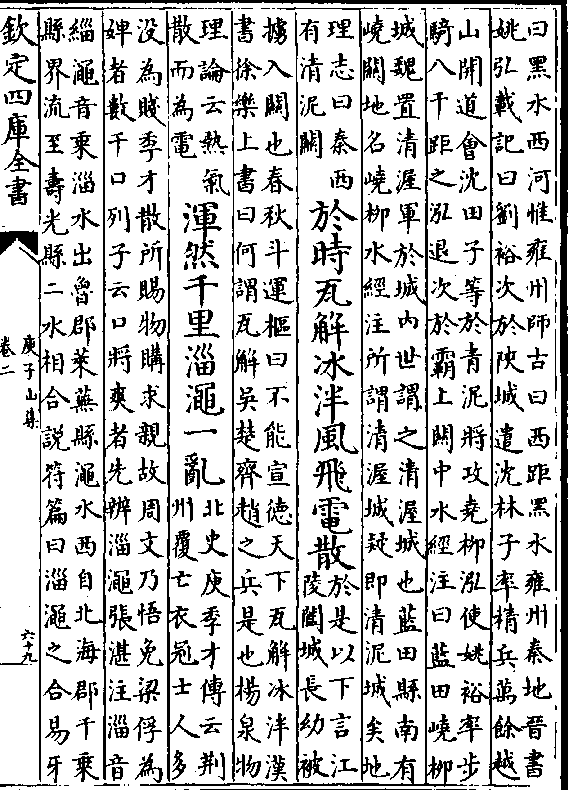 曰黑水西河惟雍州師古曰西距黑水雍州秦地晉書
姚弘載記曰劉裕次於陜城遣沈林子率精兵萬餘越
山開道會沈田子等於青泥將攻堯柳泓使姚裕率步
騎八千距之泓退次於霸上關中水經注曰藍田嶢柳
城魏置清渥軍於城内世謂之清渥城也藍田縣南有
嶢關地名嶢柳水經注所謂清渥城疑即清泥城矣地
理志曰秦西
有清泥關
於時瓦解冰泮風飛電散
於是以下言江
陵闔城長幼被
擄入關也春秋斗運樞曰不能宣德天下瓦解冰泮漢
書徐樂上書曰何謂瓦解吳楚齊趙之兵是也楊泉物
理論云熱氣
散而為電
渾然千里淄澠一亂
北史庾季才傳云荆
州覆亡衣冠士人多
没為賤季才散所賜物購求親故周文乃悟免梁俘為
婢者數千口列子云口將爽者先辨淄澠張湛注淄音
緇澠音乘淄水出魯郡萊蕪縣澠水西自北海郡千乘
縣界流至壽光縣二水相合説符篇曰淄澠之合易牙
欽定四庫全書
庾子山集
卷二
六十九